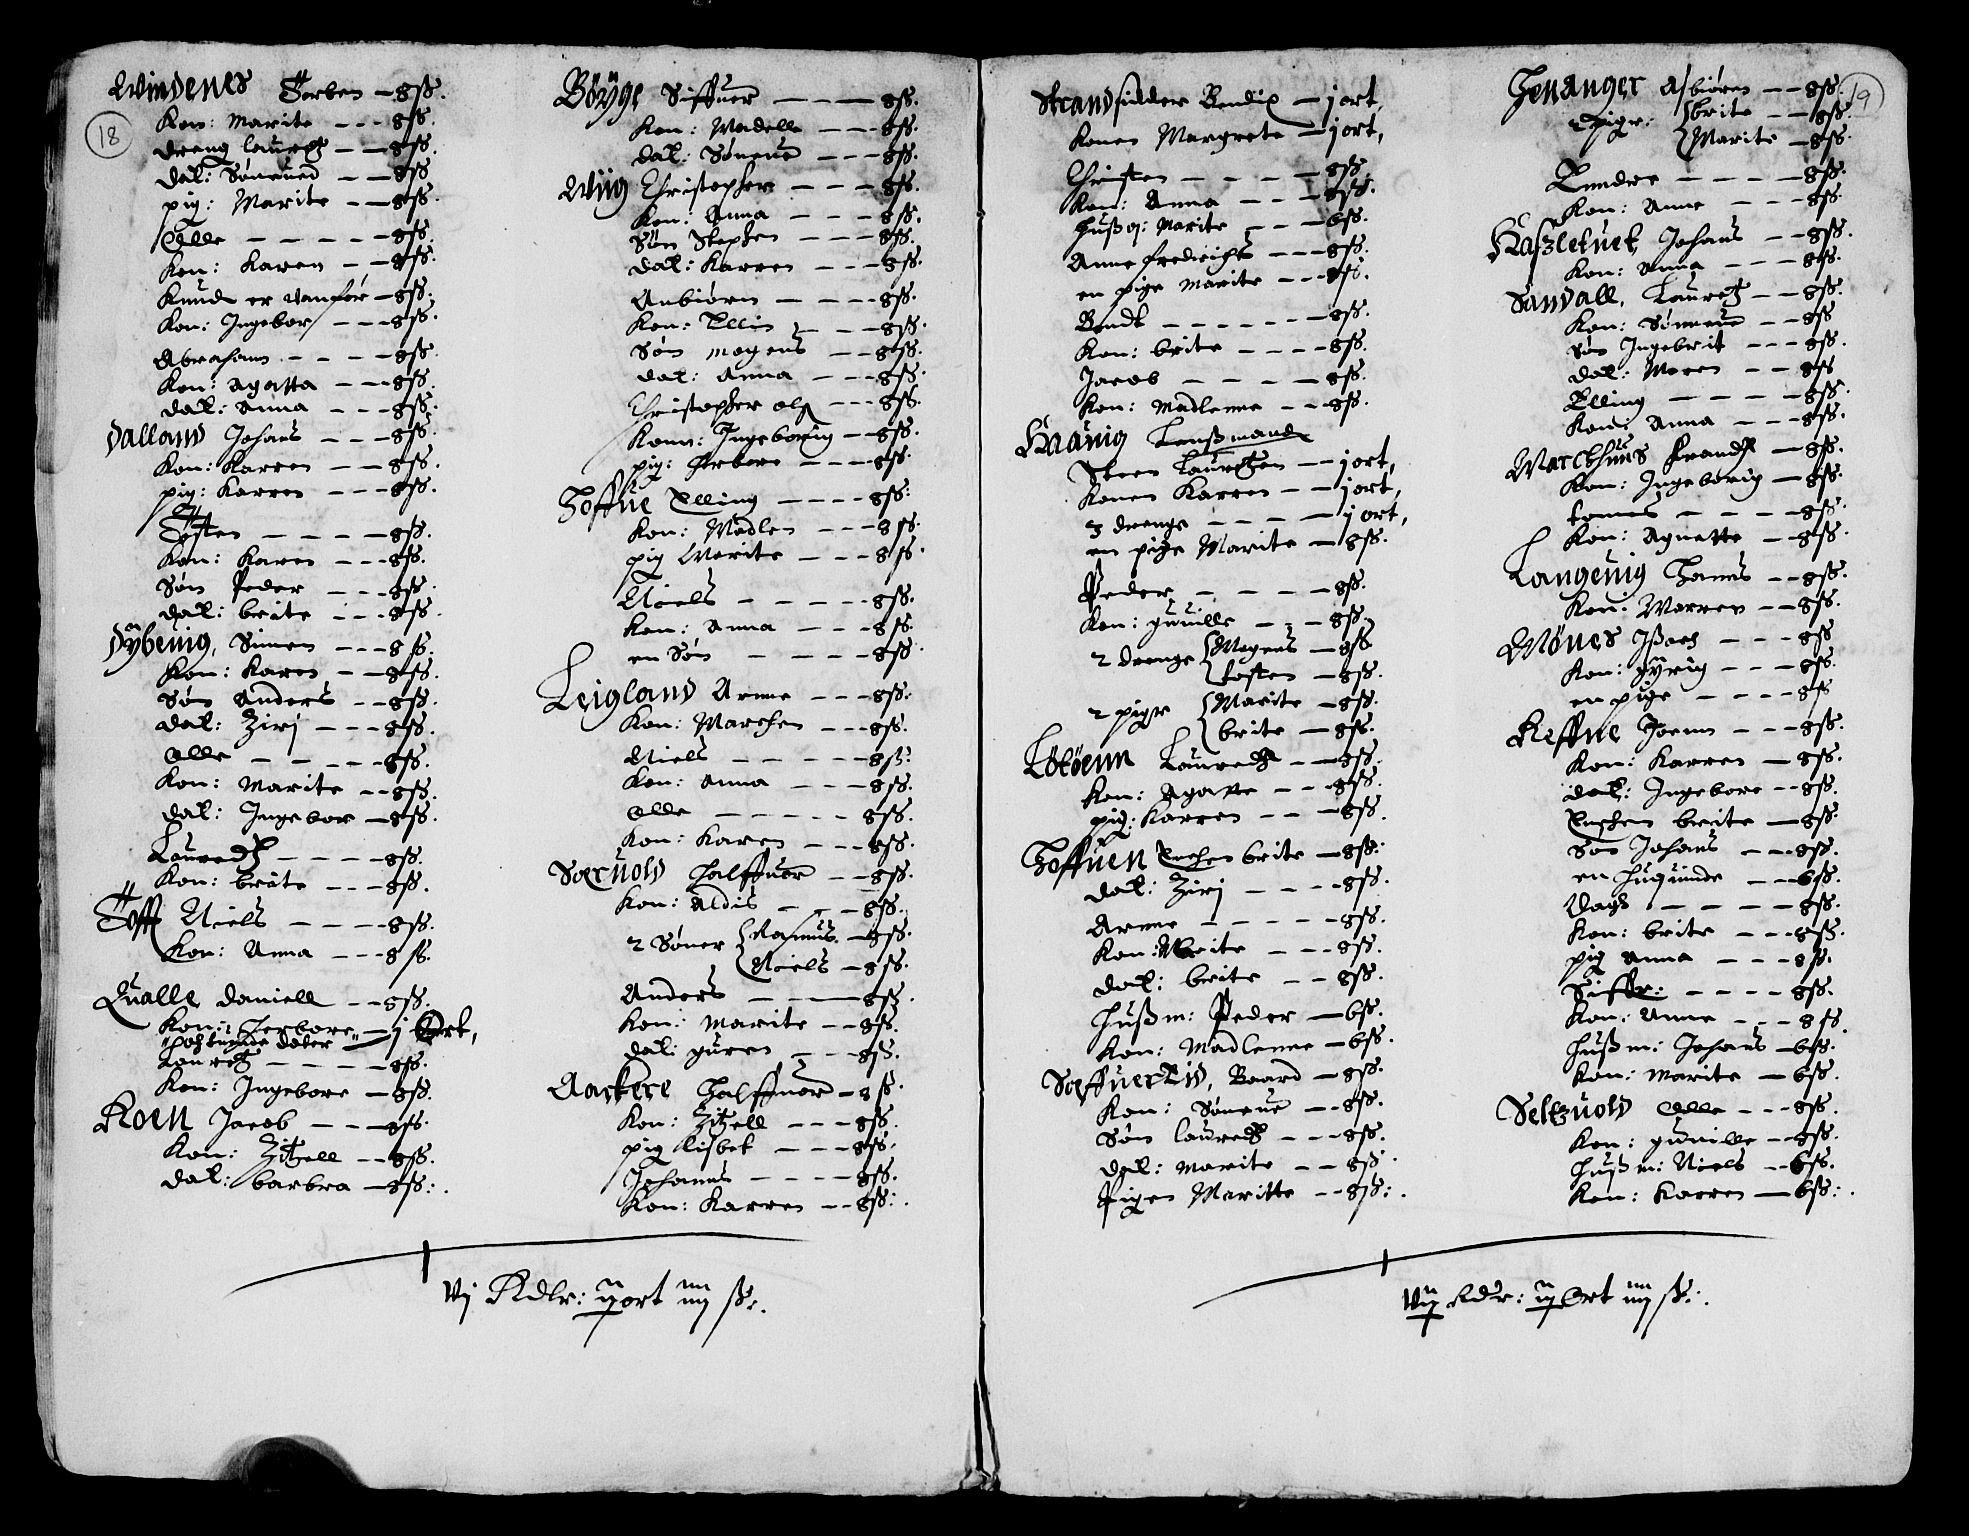 18
Windenes Torben – 8ß.
Kon: Marite – – – 8ß.
dreng lauritz – – 8ß.
dat: Søneued – – 8ß
pig: Marite – – 8ß.
Olle – – – – – 8ß.
Kon: Karen – – 8ß.
Knud er vanfør – 8ß.
Kon: Ingebor – – – 8ß.
Abraham – – – – 8ß.
Kon: Agatta – – – 8ß.
dat: Anna – – – 8ß.
Dalland Johans – – – 8ß.
Kon: Karren – – – 8ß.
pig: Karren – – – 8ß.
Tosten – – – – – 8ß.
Kon: Karen – – – 8ß.
Søn Peder – – – 8ß.
dat: brite – – – 8ß.
Dybenig, Simen – – – 8ß.
Kon: Karen – – – 8ß.
Søn Anders – – 8ß.
dat: Zirj – – – 8ß.
Olle – – – – – 8ß.
Kon: Marite – – 8ß.
dat: Ingebor – 8ß.
Lauredtz – – – – 8ß.
Kon: brite – – – 8ß.
Tofft Niels – – – – 8ß.
Kon: Anna – – – 8ß.
Qualle daniell – – 8ß.
Kon: Herbore – j Ort,
Lauretz – – – – – 8ß.
Kon: Ingebore – 8ß.
Koen Jacob – – – 8ß.
Kon: Zitzell – – 8ß.
dat: barbra – 8ß:.
Böyge Siffuer – – – – 8ß.
Kon: Madelle – – – 8ß.
dat: Søneue – – – 8ß.
Wiig Christopher – – – 8ß.
Kon: Anna – – – 8ß.
Søn Stephen – – – 8ß.
dat: Karren – – – 8ß.
Anbiörn – – – – 8ß.
Kon: Ellin – – – 8ß.
Søn mogens – – 8ß.
dat: Anna – – – 8ß.
Christopher – – – 8ß.
Konn: Ingeborrig – 8ß.
pig: Herbore – – – 8ß.
Hoffue Elling – – – – 8ß:
Kon: Madlen – – – 8ß.
pig Marite – – – 8ß.
Niels – – – – – 8ß.
Kon: Anna – – – 8ß.
en Søn – – – – 8ß.
Leigland Arne – – – 8ß.
Kon: Marchen – – – 8ß.
Niels – – – – – 8ß:
Kon: Anna – – – 8ß.
Olle – – – – – 8ß.
Kon: Karen – – – 8ß.
Særuold Halffuor – – 8ß.
Kon: Aldis – – – 8ß.
2 Søner Rasmus. – 8ß.
Niels – 8ß.
Anders – – – – 8ß.
Kon: Marite – – 8ß.
dat: guren – – – 8ß.
Aackere Halffuor – 8ß.
Kon: Zitzell – – – 8ß.
pig lisbet – – – 8ß.
Johanns – – – – 8ß.
Kon: Karren – – 8ß:.
Vj Rdlr: ij ort iiij ß:.
Strandsidder Bendix – j ort,
Konen Margrete – j ort,
Christen – – – – – 8ß.
Kon: Anna – – – 8ß.
Hußq: Marite – – – 6ß.
Anne fredrichs – – – 8ß.
en pige marite – – – 8ß.
Bendt – – – – – – 8ß.
Kon: brite – – – – 8ß.
Jacob – – – – – 8ß.
Kon: Madlenne – – 8ß.
Lenßmand
Steen Lauretzen – – j ort,
Konen Karren – – j ort,
3 drenge – – – – j ort,
en pige Marite – 8ß.
Peder – – – – – 8ß.
Kon: guuille – – – 8ß.
2 drenge Mogens – 8ß
tosten – 8ß.
2 piger Marite – 8ß.
brite – 8ß.
Lauredtz – – 8ß.
Kon: Agatte – – – 8ß.
pig: Karren – – – 8ß.
Hoffuen Enchen brite – 8ß.
dat: Zirj – – – – 8ß.
Arnne – – – – – 8ß.
Kon: brite – – – 8ß.
dat: brite – – 8ß.
Hußm: Peder – 6ß.
Kon: Madlenne – 6ß.
Sæffuertid, Baard – 8ß.
Kon: Søneue – – 8ß.
Søn lauredtz – – – 8ß.
dat: Marite – – 8ß.
Pigen Maritte – – 8ß:.
19
Henanger Asbiören – – 8ß.
2 piger: brite – – 8ß.
Marite – 8ß.
Endre – – – – – 8ß.
Kon: Anne – – – 8ß.
Johans – – 8ß.
Kon: Anna – – – 8ß.
Sandall, Lauretz – – 8ß.
Kon: Sønneue – – 8ß
Søn Ingebrit – – 8ß.
dat: Maren – – 8ß
Elling – – – – – 8ß.
Kon: Anna – – – 8ß.
Marckhuus Frandtz – 8ß.
Kon: Ingeborig – 8ß.
tomes – – – – – 8ß.
Kon: Agnette – – 8ß.
Langenig Hanns – – 8ß.
Kon: Marren – – 8ß.
Mønes Ißach – – – 8ß
Kon: gyrig – – – 8ß.
en pige – – – – 8ß
Reffne Joenn – – – 8ß.
Kon: Karren – 8ß.
dat: Ingebore – – 8ß.
Enchen brite – 8ß.
Søn Johans – – – 8ß.
en Hußquinde – – 6ß.
Dagh – – – – – 8ß.
Kon: brite – – – 8ß.
pig Anna – – – 8ß.
Siffr: – – – – 8ß.
Kon: Anne – – – 8ß.
Hußm: Johans – 6ß.
Kon: Marite – 6ß.
Seltzuold Olle – – – 8ß.
Kon: guuille – 8ß.
Hußm: Niels – – 6ß.
Kon: Karren – 6ß:.
Vij Rdr: ij Ort iiij ß:.